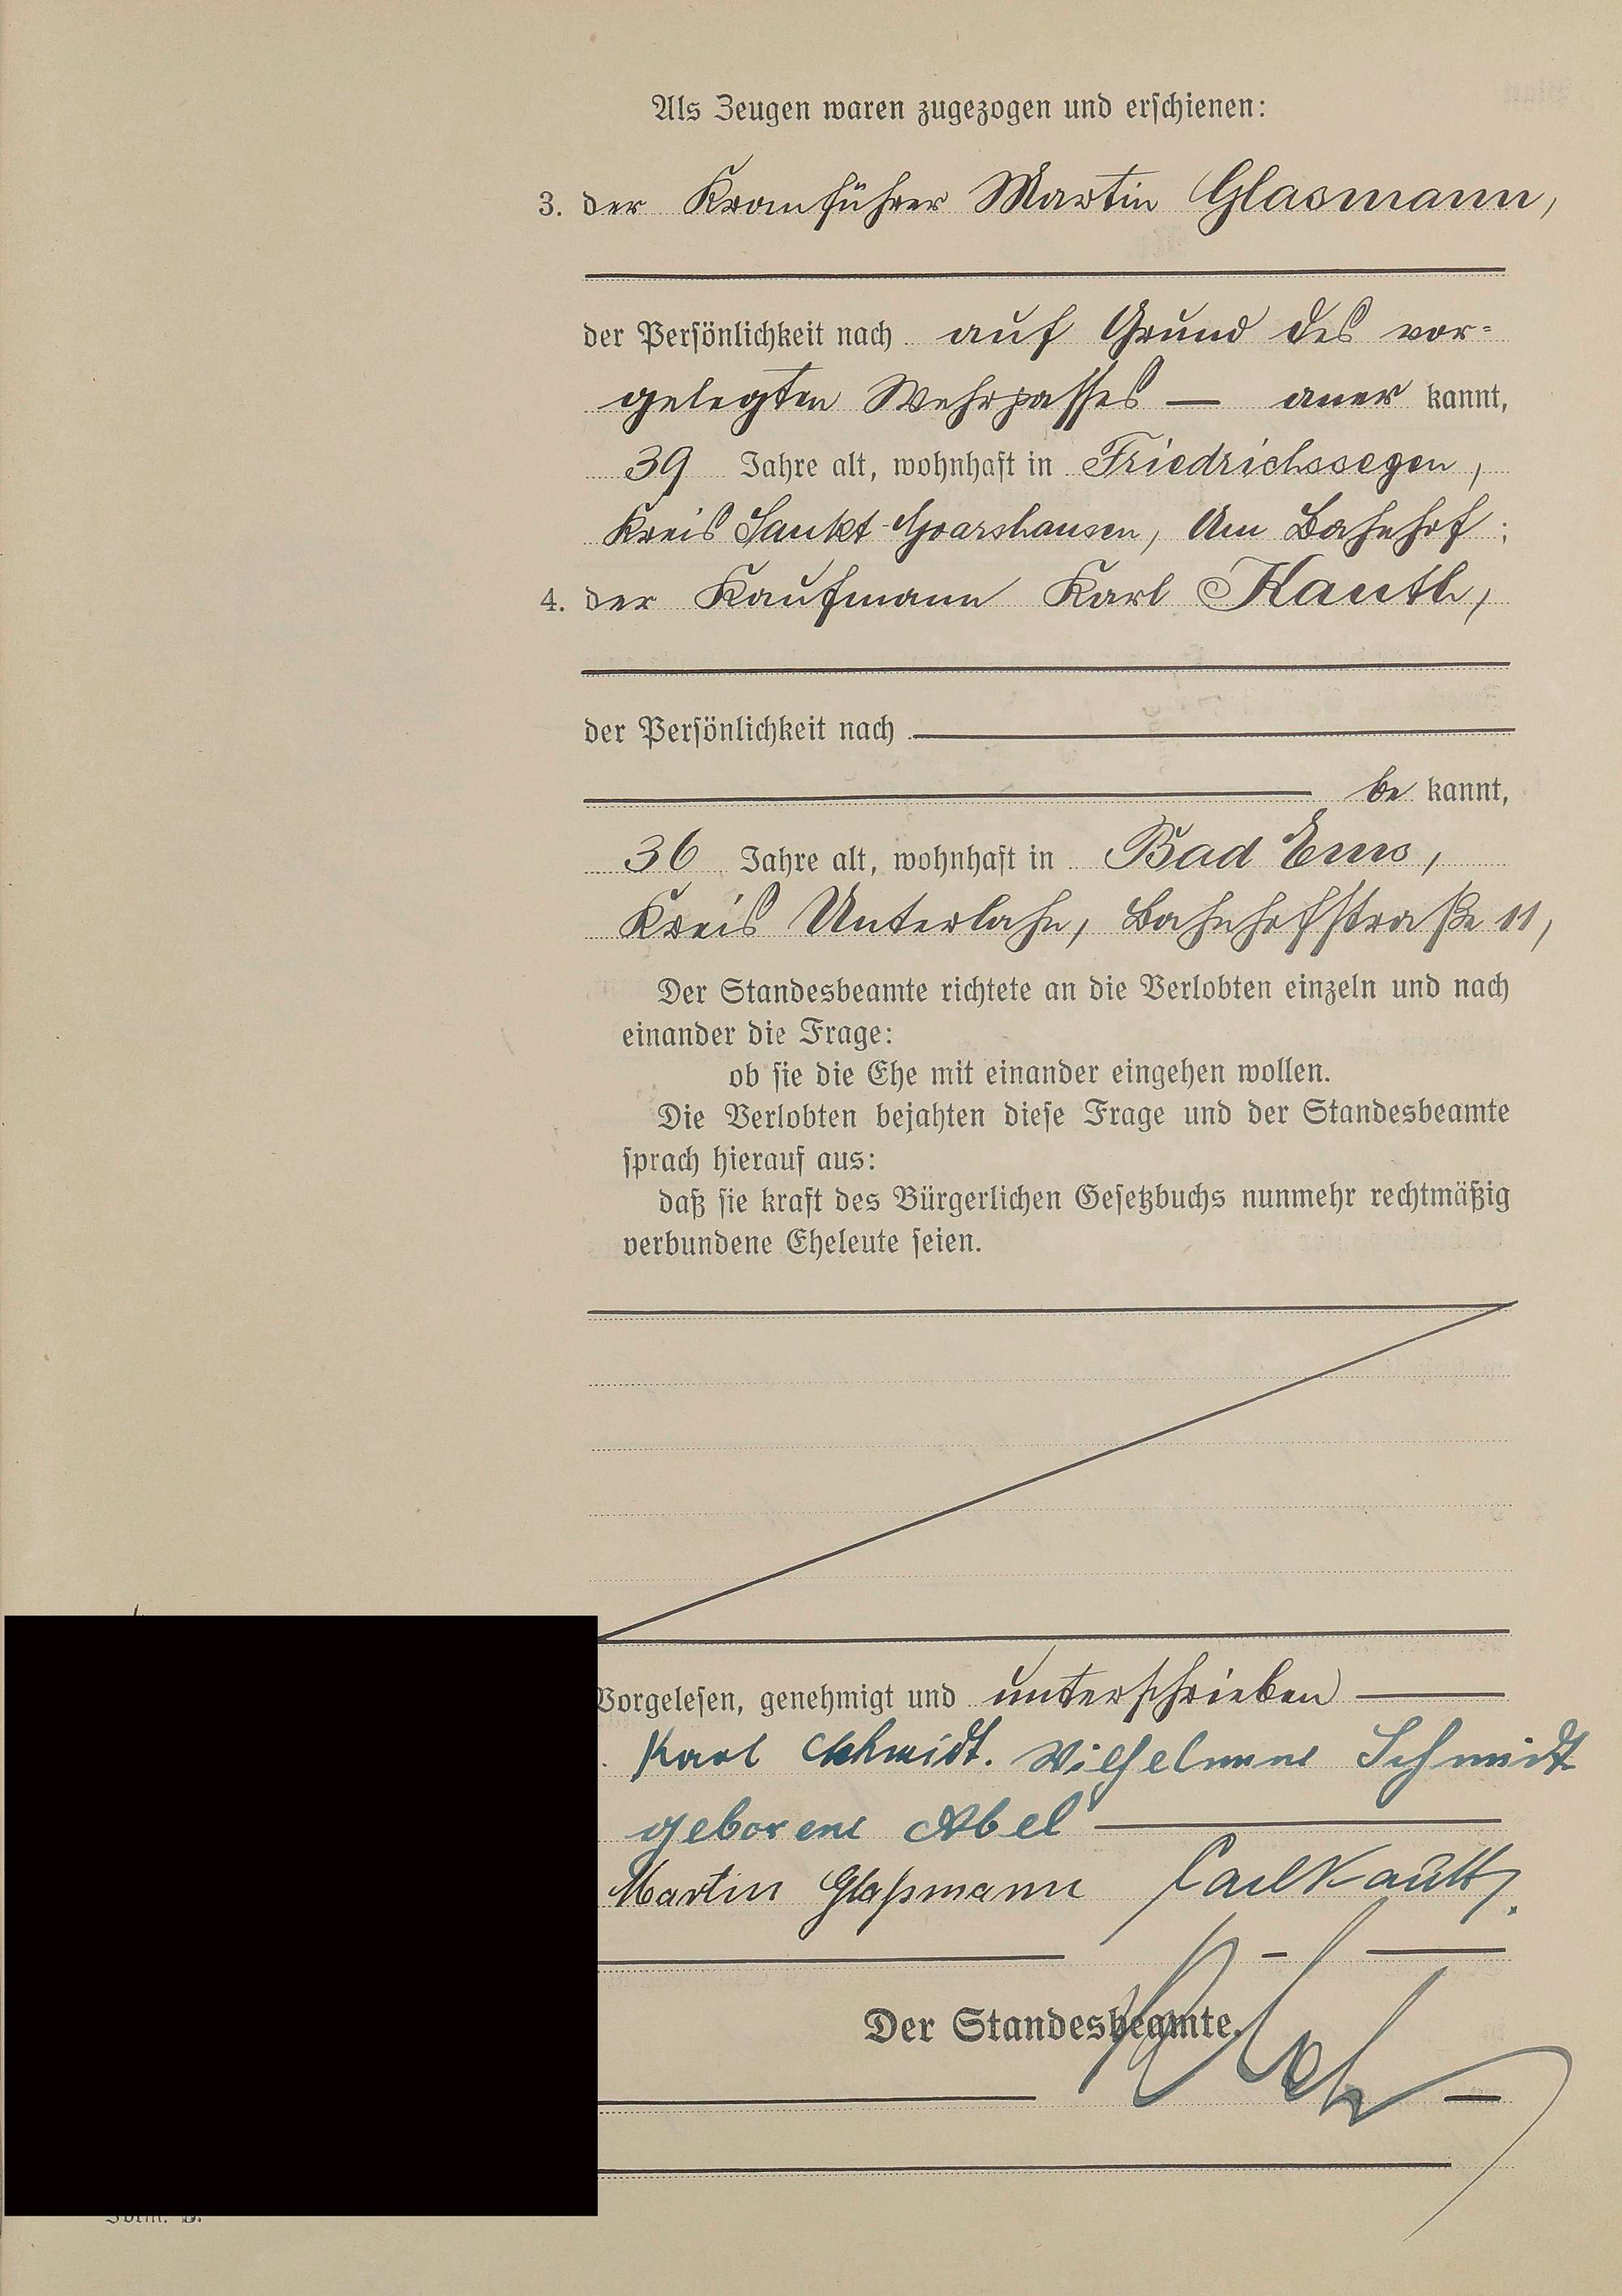 Als Zeugen waren zugezogen und erschienen:
3. der Kranführer Martin Glasmann,
der Persönlichkeit nach auf Grund des vor-
gelegten Wehrpasses — aner kannt,
39 Jahre alt, wohnhaft in Friedrichssegen,
Kreis Sankt-Goarshausen, Am Bahnhof;
4. der Kaufmann Karl Kauth,
der Persönlichkeit nach
be kannt,
36 Jahre alt, wohnhaft in Bad Ems,
Kreis Unterlahn, Bahnhofstraße 11,
Der Standesbeamte richtete an die Verlobten einzeln und nach
einander die Frage:
ob sie die Ehe mit einander eingehen wollen.
Die Verlobten bejahten diese Frage und der Standesbeamte
sprach hierauf aus:
daß sie kraft des Bürgerlichen Gesetzbuchs nunmehr rechtmäßig
verbundene Eheleute seien.
Vorgelesen, genehmigt und unterschrieben
Karl Schmidt. Wilhelmine Schmidt
geborene Abel
Martin Glaßmann Carl Kauth.
Der Standesbeamte.